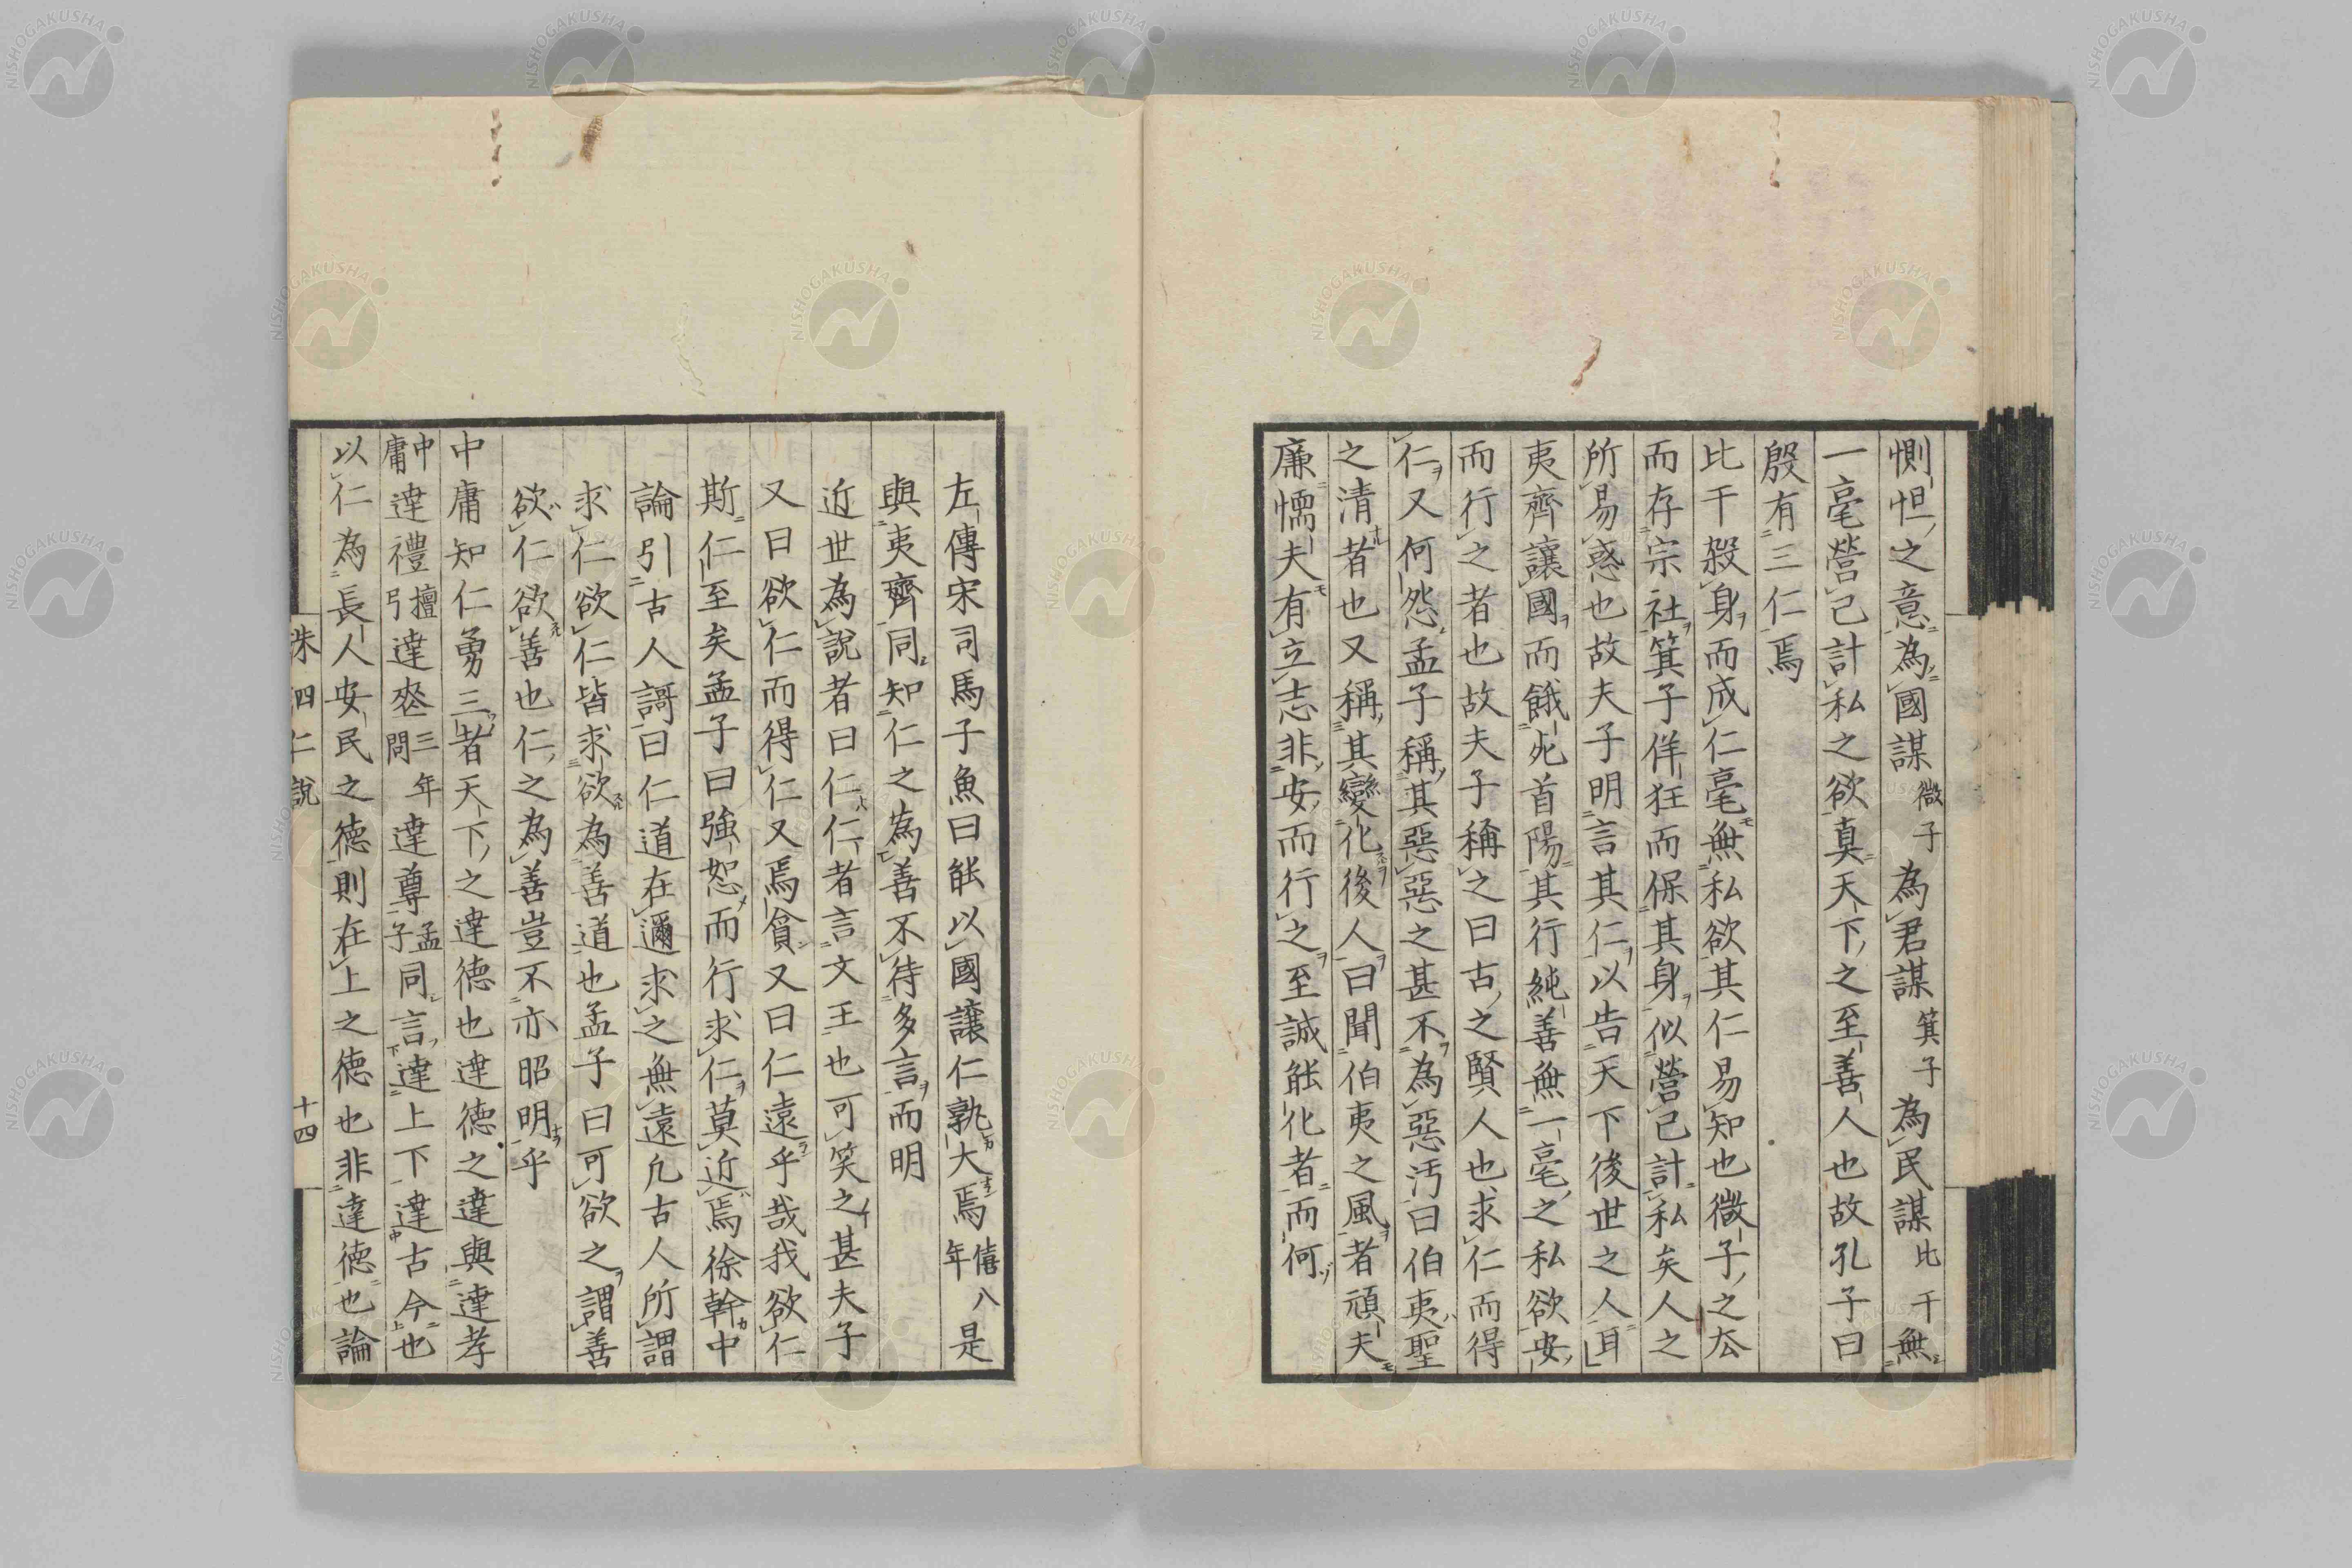 惻怛之意為國謀微子為君謀箕子為民謀比干無
一毫營己計私之欲真天下之至善人也故孔子曰
殷有三仁焉
比干殺身而成仁毫無私欲其仁易知也微子之厺
而存宗社箕子佯狂而保其身似營己計私矣人之
所易惑也故夫子明言其仁以告天下後世之人耳
夷齊讓國而餓死首陽其行純善無一毫之私欲安
而行之者也故夫子稱之曰古之賢人也求仁而得
仁又何怨孟子稱其惡惡之甚不為惡汚曰伯夷聖
之清者也又稱其變化後人曰聞伯夷之風者頑夫
廉懦夫有立志非安而行之至誠能化者而何
左傳宋司馬子魚曰能以國讓仁孰大焉僖八年是
與夷齊同知仁之為善不待多言而明
近世為說者曰仁仁者言文王也可笑之甚夫子
又曰欲仁而得仁又焉貪又曰仁遠乎哉我欲仁
斯仁至矣孟子曰強恕而行求仁莫近焉徐幹中
論引古人謌曰仁道在邇求之無遠凢古人所謂
求仁欲仁皆求欲為善道也孟子曰可欲之謂善
欲仁欲善也仁之為善豈不亦昭明乎
中庸知仁勇三者天下之達德也達德之達與達孝
中庸達禮檀弓達喪三年問達尊孟子同言達上下達古今也
以仁為長人安民之德則在上之德也非達德也論
洙四仁說 十四
NISHOGAKUSHA